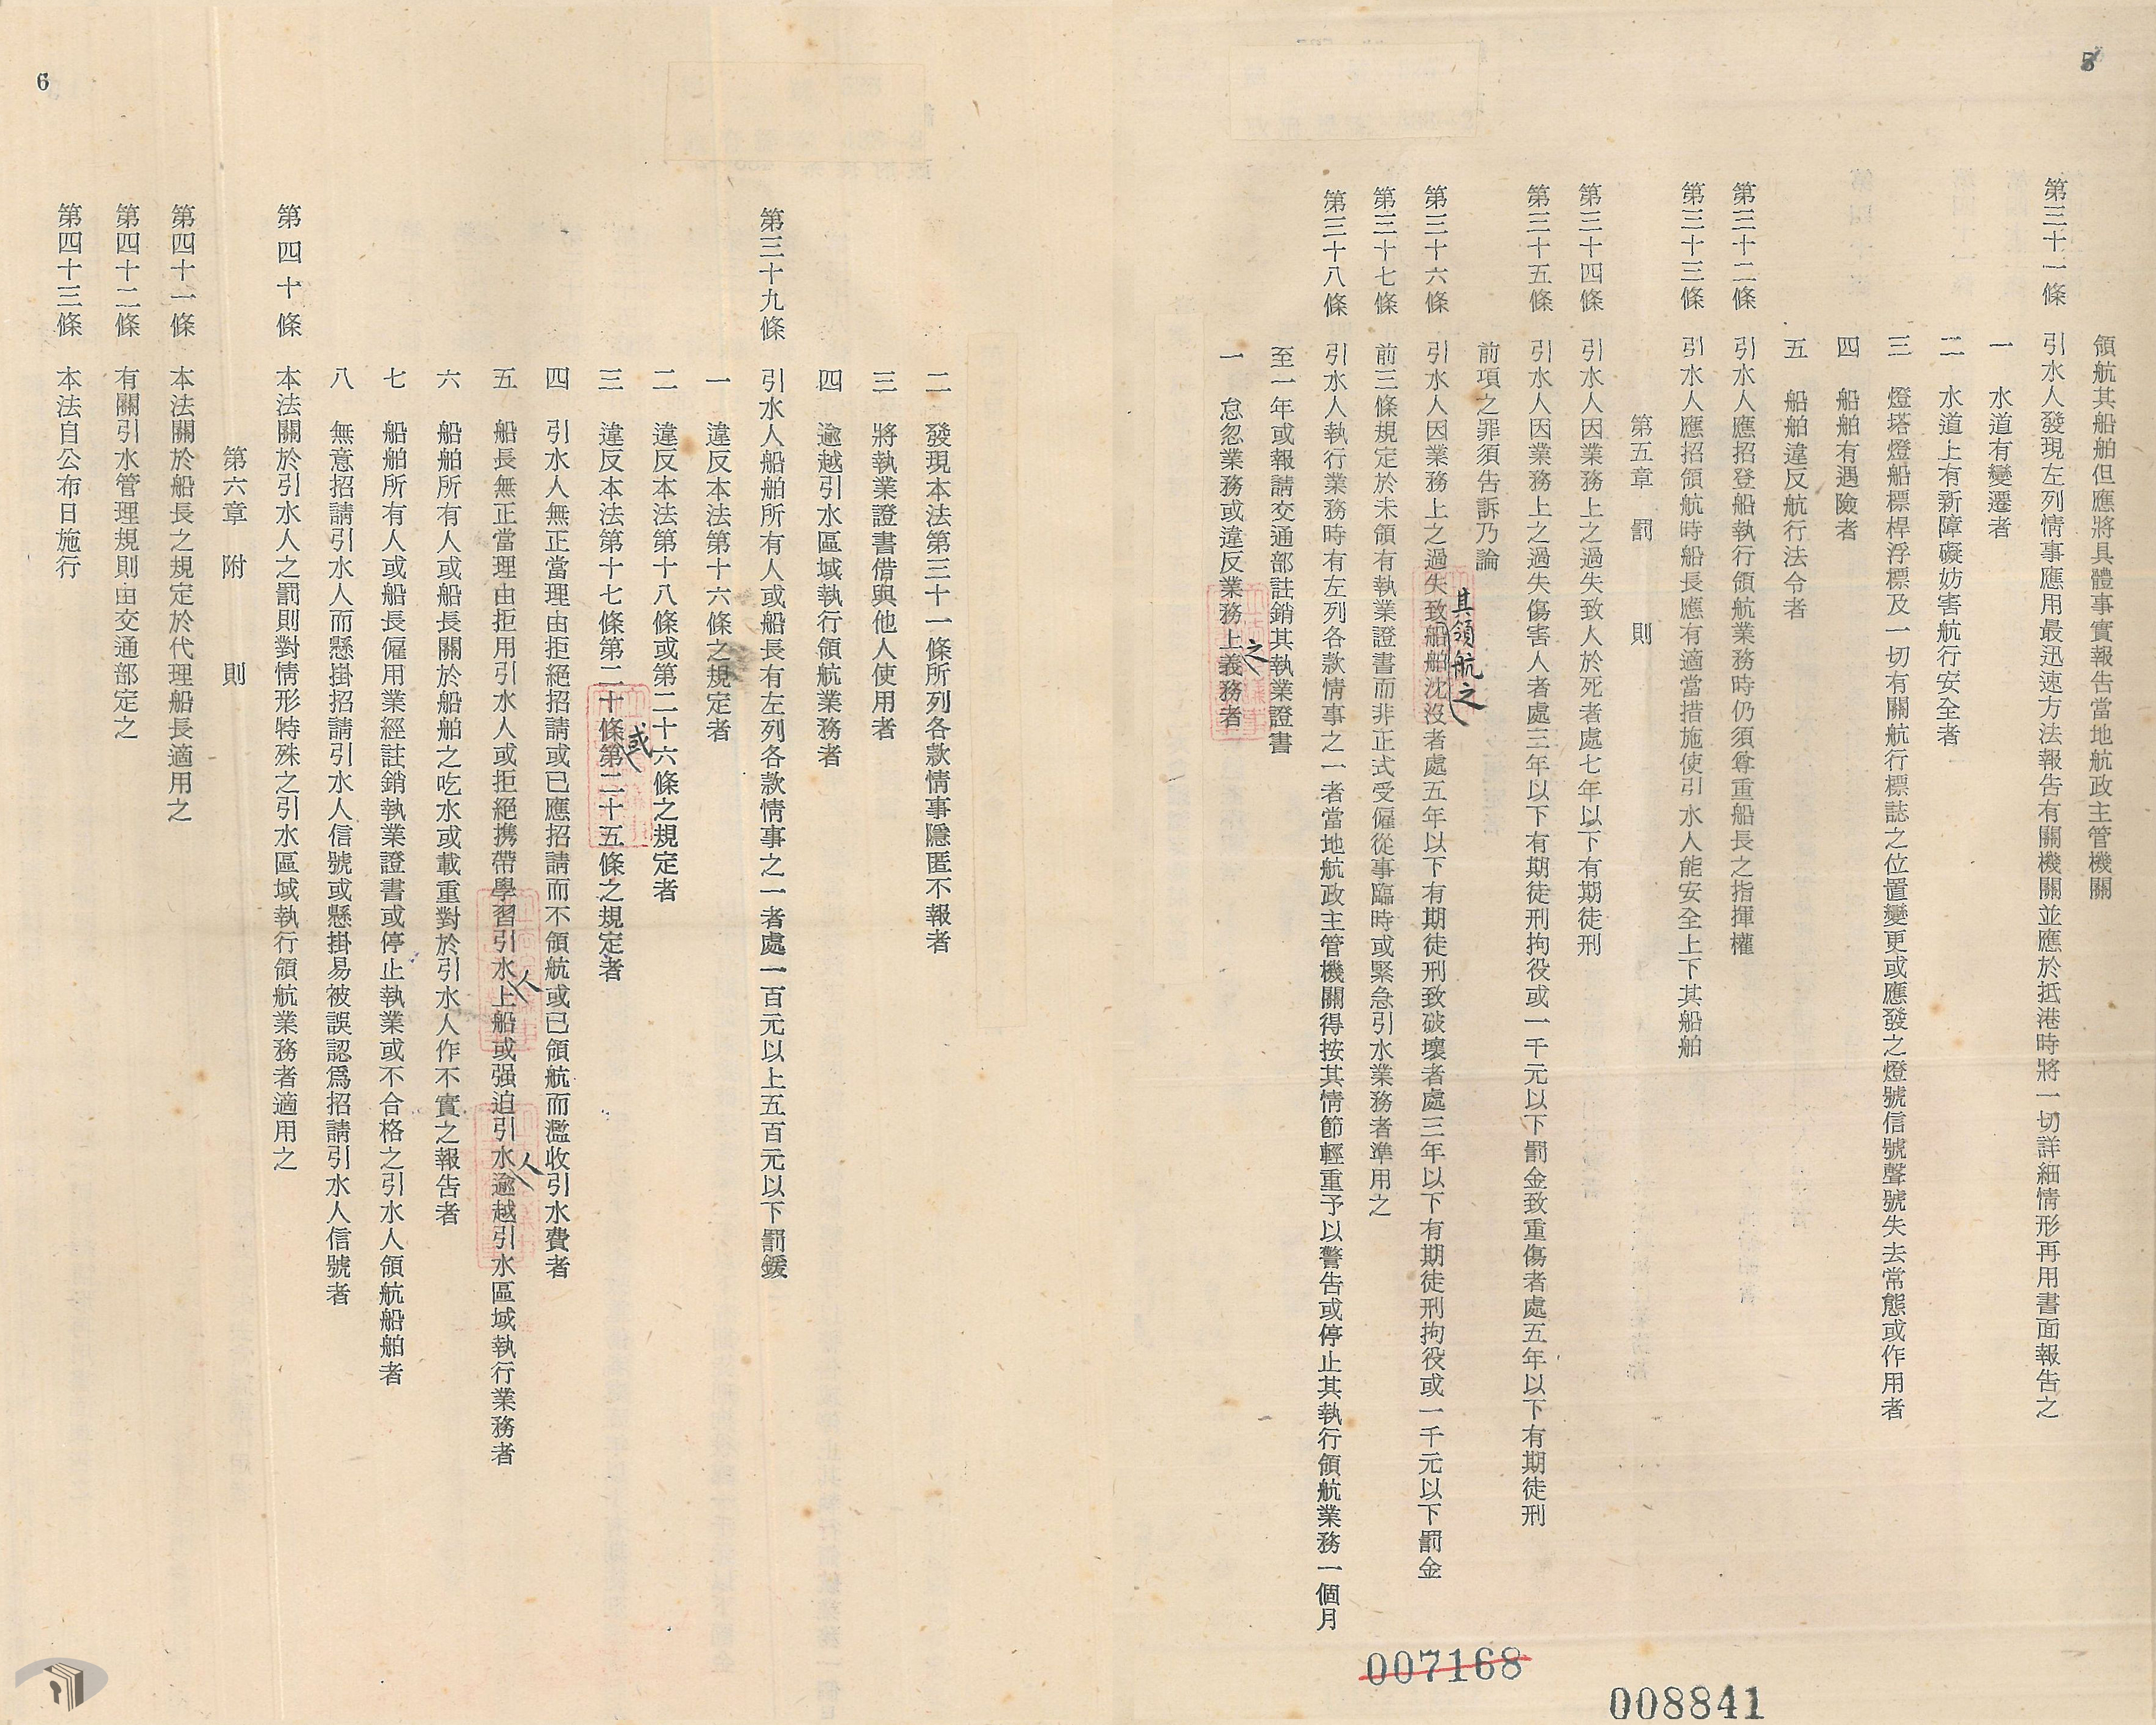 5
領航其船舶但應將具體事實報告當地航政主管機關
第三十一條　引水人發現左列情事應用最迅速方法報告有關機關並應於抵港時將一切詳細情形再用書面報告之
一　水道有變遷者
二　水道上有新障礙妨害航行安全者
三　燈塔燈船標桿浮標及一切有關航行標誌之位置變更或應發之燈號信號聲號失去常態或作用者
四　船舶有遇險者
五　船舶違反航行法令者
第三十二條　引水人應招登船執行領航業務時仍須尊重船長之指揮權
第三十三條　引水人應招領航時船長應有適當措施使引水人能安全上下其船舶
第五章　罰　則
第三十四條　引水人因業務上之過失致人於死者處七年以下有期徒刑
第三十五條　引水人因業務上之過失傷害人者處三年以下有期徒刑拘役或一千元以下罰金致重傷者處五年以下有期徒刑
前項之罪須告訴乃論
第三十六條　引水人因業務上之過失致其領航之船舶沈沒者處五年以下有期徒刑致破壞者處三年以下有期徒刑拘役或一千元以下罰金
第三十七條　前三條規定於未領有執業證書而非正式受僱從事臨時或緊急引水業務者準用之
第三十八條　引水人執行業務時有左列各款情事之一者當地航政主管機關得按其情節輕重予以警告或停止其執行領航業務一個月
至一年或報請交通部註銷其執業證書
一　怠忽業務或違反業務上之義務者
007168
008841
二　發現本法第三十一條所列各款情事隱匿不報者
三　將執業證書借與他人使用者
四　逾越引水區域執行領航業務者
第三十九條　引水人船舶所有人或船長有左列各款情事之一者處一百元以上五百元以下罰鍰
一　違反本法第十六條之規定者
二　違反本法第十八條或第二十六條之規定者
三　違反本法第十七條第二十條或第二十五條之規定者
四　引水人無正當理由拒絕招請或已應招請而不領航或已領航而濫收引水費者
五　船長無正當理由拒用引水人或拒絕携帶學習引水人上船或强迫引水人逾越引水區域執行業務者
六　船舶所有人或船長關於船舶之吃水或載重對於引水人作不實之報告者
七　船舶所有人或船長僱用業經註銷執業證書或停止執業或不合格之引水人領航船舶者
八　無意招請引水人而懸掛招請引水人信號或懸掛易被誤認爲招請引水人信號者
第四十條　本法關於引水人之罰則對情形特殊之引水區域執行領航業務者適用之
第六章　附　則
第四十一條　本法關於船長之規定於代理船長適用之
第四十二條　有關引水管理規則由交通部定之
第四十三條　本法自公布日施行
6